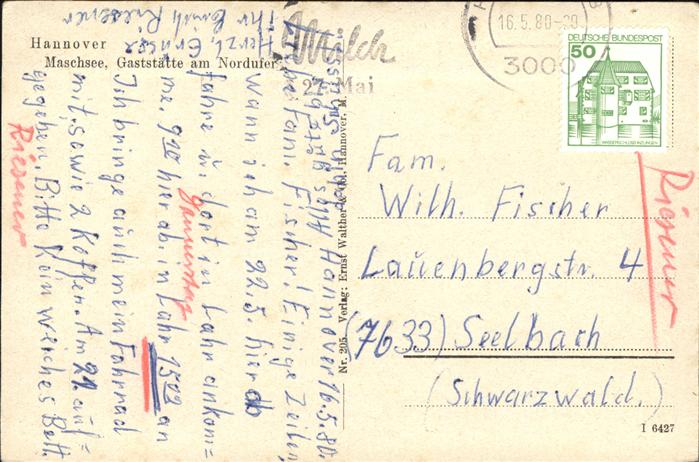 Hannover
Maschsee, Gaststätte am Nordufer
Nr. 205 Verlag: Ernst Walther & Hannover, M.
Hannover 16.5.80.
Liebe Fam. Fischer! Einige Zeilen,
wann ich am 22.5. hier ab
fahre u. dort in Lahr ankom=
me. 9 00 hier ab, in Lahr 15 09 an
Donnerstag
Ich bringe auch mein Fahrrad
mit, sowie 2 Koffer. Am 21 auf=
gegeben. Bitte kein weiches Bett.
Herzl. Grüsse
Ihr Emil Riesener
Riesener
Milch
27. Mai
16.5.80-
3000
DEUTSCHE BUNDESPOST
50
WASSERSCHLOSS INZLINGEN
Riesener
Fam.
Wilh. Fischer
Lauenbergstr. 4
(7633) Seelbach
(Schwarzwald.)
I 6427